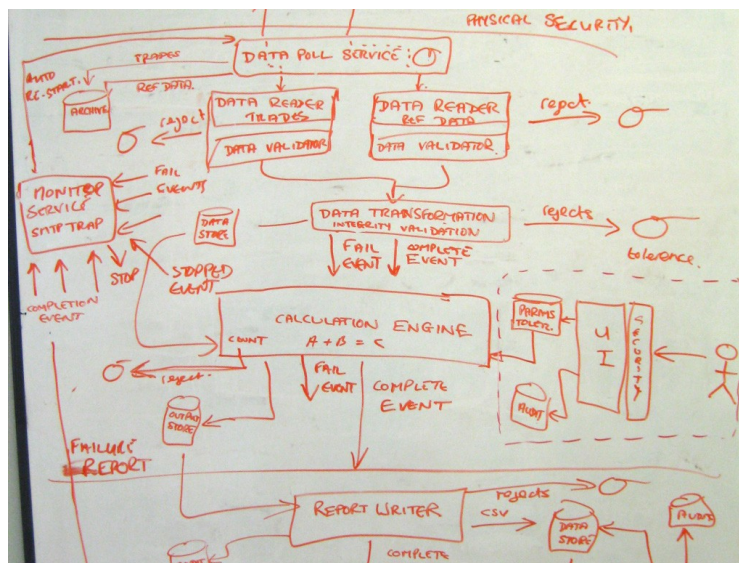 PHYSICAL SECURITY.
TRADES
DATA POLL SERVICE
AUTO
RE-START.
REF DATA.
ARCHIVE
DATA READER
TRADES
DATA VALIDATOR
reject
DATA READER
REF DATA
DATA VALIDATOR
reject.
MONITOR
SERVICE
SMTP TRAP
FAIL
EVENTS
DATA
STORE
DATA TRANSFORMATION
INTEGRITY VALIDATION
rejects
tolerence.
FAIL
EVENT
COMPLETE
EVENT
STOP
STOPPED
EVENT
COMPLETION
EVENT
CALCULATION ENGINE
A + B = C
COUNT
reject.
PARAMS
TOLER.
UI
SECURITY
AUDIT
FAIL
EVENT
COMPLETE
EVENT
OUTPUT
STORE
FAILURE
REPORT
REPORT WRITER
rejects
CSV
DATA
STORE
AUDIT
COMPLETE